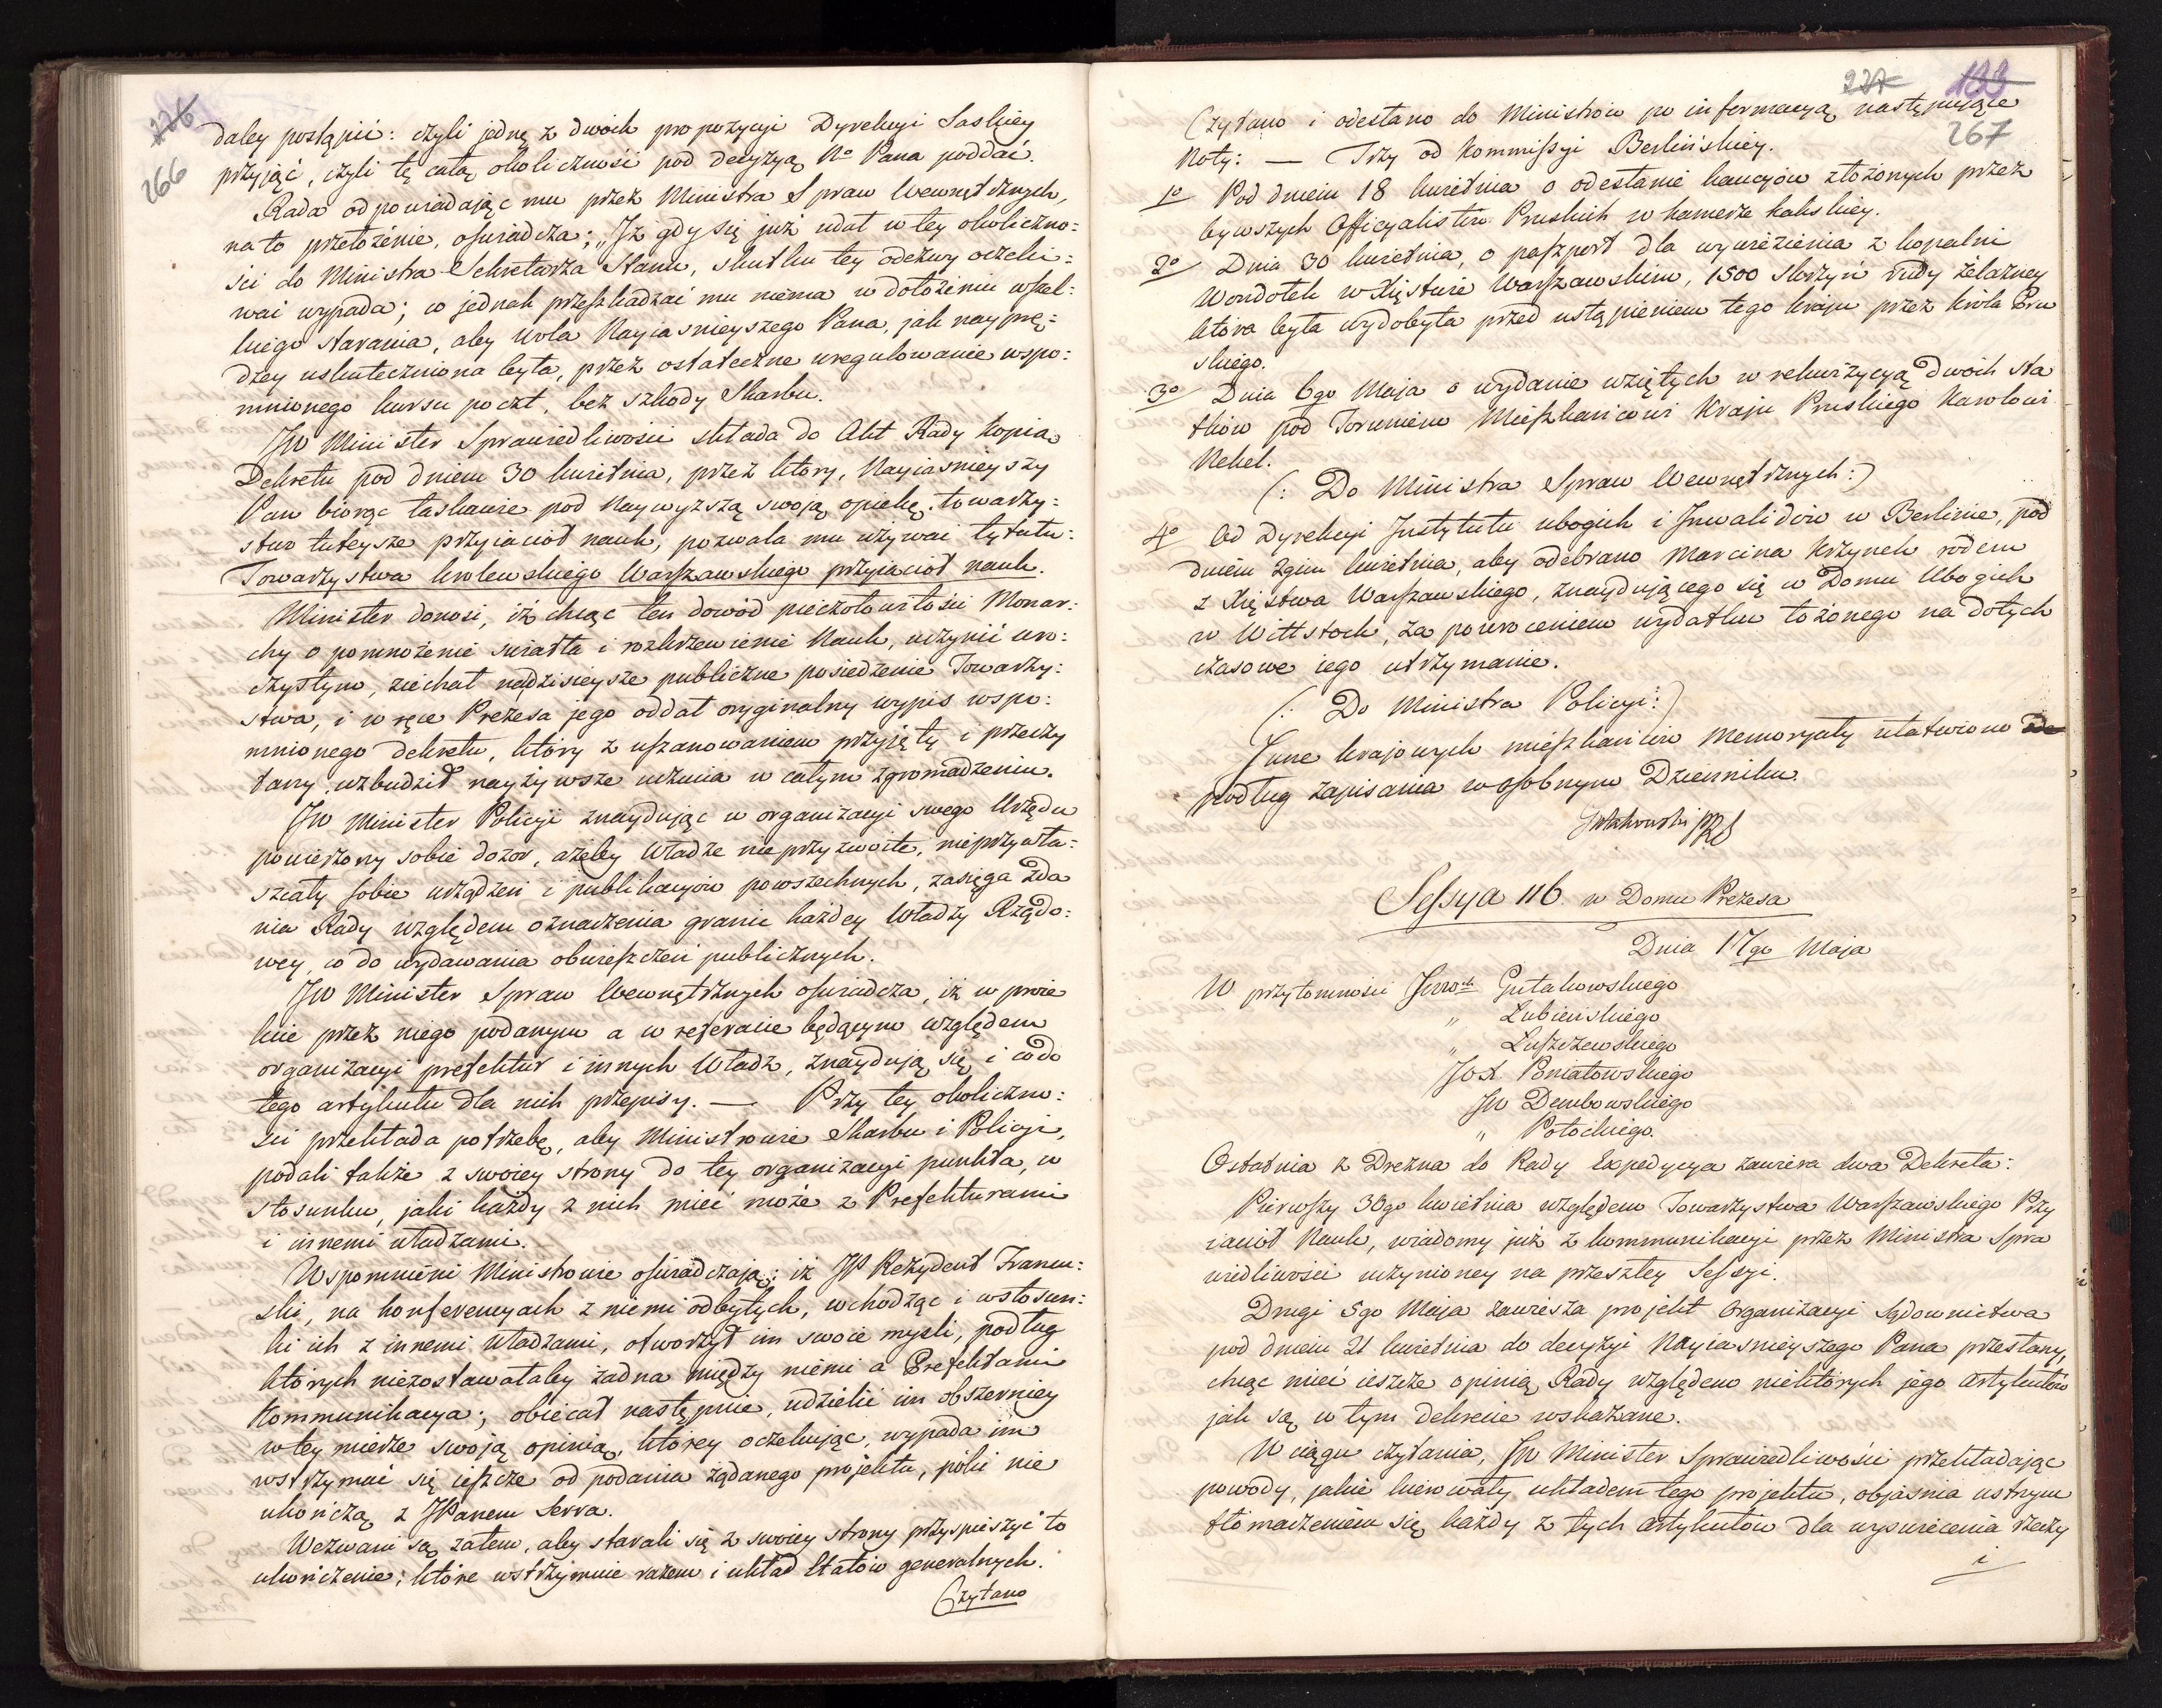 226
266
daley postąpić: czyli jednę z dwóch propozycyi Dyrekcyi Saskiey
przyjąć, czyli tę całą okoliczność pod decyzyą No Pana poddać.
Rada odpowiadając mu przez Ministra Spraw Wewnętrznych,
na to przełożenie, oświadcza; „Iż gdy się już udał w tey okoliczno=
ści do Ministra Sekretarza Stanu, skutku tey odezwy oczeki=
wać wypada; co jednak przeszkadzać mu niema w dołożeniu wszel=
kiego starania, aby wola Nayiasnieyszego Pana, jak nayprę=
dzey uskuteczniona była, przez ostateczne uregulowanie wspo=
mnionego kursu poczt, bez szkody Skarbu.
JW Minister Sprawiedliwości składa do Akt Rady kopią
Dekretu pod dniem 30 kwietnia, przez który, Nayiasnieyszy
Pan biorąc łaskawie pod Naywyższą swoją opiekę, towarzy=
stwo tuteysze przyiaciół nauk, pozwala mu używać tytułu:
Towarzystwa krolewskiego Warszawskiego przyiaciół nauk.
Minister donosi, iż chcąc ten dowód pieczołowitości Monar=
chy o pomnożenie światła i rozkrzewienie Nauk, uczynić uro=
czystym, ziechał na dzisieysze publiczne posiedzenie Towarzy=
stwa, i w ręce Prezesa jego oddał oryginalny wypis wspo=
mnionego dekretu, który z uszanowaniem przyjęty i przeczy
tany, wzbudził nayżywsze uczucia w całym zgromadzeniu.
JW Minister Policyi znaydując w organizacyi swego Urzędu
powierzony sobie dozor, ażeby Władze nieprzyzwoite, nieprzywła=
szczały sobie urządzeń i publikacyiow powszechnych, zasięga zda
nia Rady względem oznaczenia granic każdey Władzy Rządo=
wey, co do wydawania obwieszczeń publicznych.
JW Minister Spraw Wewnętrznych oświadcza, iż w proie
kcie przez niego podanym a w referacie będącym względem
organizacyi prefektur i innych Władz, znaydują się i co do
tego artykułu dla nich przepisy. — Przy tey okoliczno=
ści przekłada potrzebę, aby Ministrowie Skarbu i Policyi,
podali także z swoiey strony do tey organizacyi punkta, w
stosunku, jaki każdy z nich mieć może z Prefekturami
i innemi władzami.
Wspomnieni Ministrowie oświadczają; iż JP Rezydent Francu=
ski, na konferencyach z niemi odbytych, wchodząc i w stosun=
ki ich z innemi Władzami, otworzył im swoie mysli, podług
których niezostawałaby żadna między niemi a Prefektami
Kommunikacya; obiecał następnie, udzielić im obszerniey
w tey mierze swoją opinią, którey oczekując, wypada im
wstrzymać się ieszcze od podania żądanego projektu, póki nie
ukończą z JPanem Serra.
Wezwani są zatem, aby starali się z swoiey strony przyspieszyć to
ukończenie; które wstrzymuie razem i układ Etatów generalnych.
Czytano
227
133
267
Czytano i odesłano do Ministrów po informacyą następujące
Noty: — Trzy od Kommissyi Berlińskiey.
1o Pod dniem 18 kwietnia o odesłanie kaucyów złożonych przez
bywszych Officyalistów Pruskich w kamerze kaliskiey.
2o Dnia 30 kwietnia, o paszport dla wywiezienia z kopalni
Wondołek w Xięstwie Warszawskim, 1500 skrzyń rudy żelazney
która była wydobyta przed ustąpieniem tego kraju przez króla Pru
skiego.
3o Dnia 6go Maja o wydanie wziętych w rekwizycyą dwóch sta
tków pod Toruniem Mieszkańcowi Kraju Pruskiego Karolowi
Nekel.
(: Do Ministra Spraw Wewnętrznych:)
4o Od Dyrekcyi Instytutu ubogich i Inwalidów w Berlinie, pod
dniem 2gim kwietnia, aby odebrano Marcina Krzynek rodem
z Xięstwa Warszawskiego, znaydującego się w Domu Ubogich
w Wittstock, za powroceniem wydatku łożonego na dotych
czasowe iego utrzymanie.
(: Do Ministra Policyi:)
Inne krajowych mieszkańców memoryały ułatwiono
podług zapisania w osobnym Dzienniku.
Gutakowski PRS
Sessya 116 w Domu Prezesa
Dnia 17go Maja
W przytomności JWWch Gutakowskiego
„ Łubieńskiego
„ Łuszczewskiego
JOX. Poniatowskiego
JW Dembowskiego
„ Potockiego.
Ostatnia z Drezna do Rady Expedycya zawiera dwa Dekreta:
Pierwszy 30go kwietnia względem Towarzystwa Warszawskiego Przy
iaciół Nauk, wiadomy już z kommunikacyi przez Ministra Spra
wiedliwości uczynioney na przeszłey Sessyi.
Drugi 5go Maja zawiesza projekt Organizacyi Sądownictwa
pod dniem 21 kwietnia do decyzyi Nayiasnieyszego Pana przesłany,
chcąc mieć ieszcze opinią Rady względem niektórych jego artykułów
jak są w tym dekrecie wskazane.
W ciągu czytania, JW Minister Sprawiedliwości przekładając
powody, jakie kierowały układem tego projektu, objasnia ustnym
tłomaczeniem się każdy z tych artykułów dla wyświecenia rzeczy
i